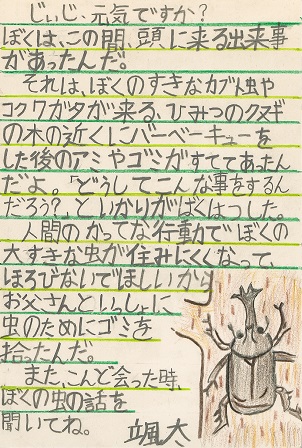 じぃじ、元気ですか?
ぼくは、この間、頭に来る出来事
があったんだ。
それは、ぼくのすきなカブト虫や
コクワガタが来る、ひみつのクヌギ
の木の近くにバーベーキューを
した後のアミやゴミがすててあったん
だよ。「どうしてこんな事をするん
だろう?」といかりがばくはつした。
人間のかってな行動でぼくの
大すきな虫が住みにくくなって、
ほろびないでほしいから
お父さんといっしょに
虫のためにゴミを
拾ったんだ。
また、こんど会った時、
ぼくの虫の話を
聞いてね。 颯大